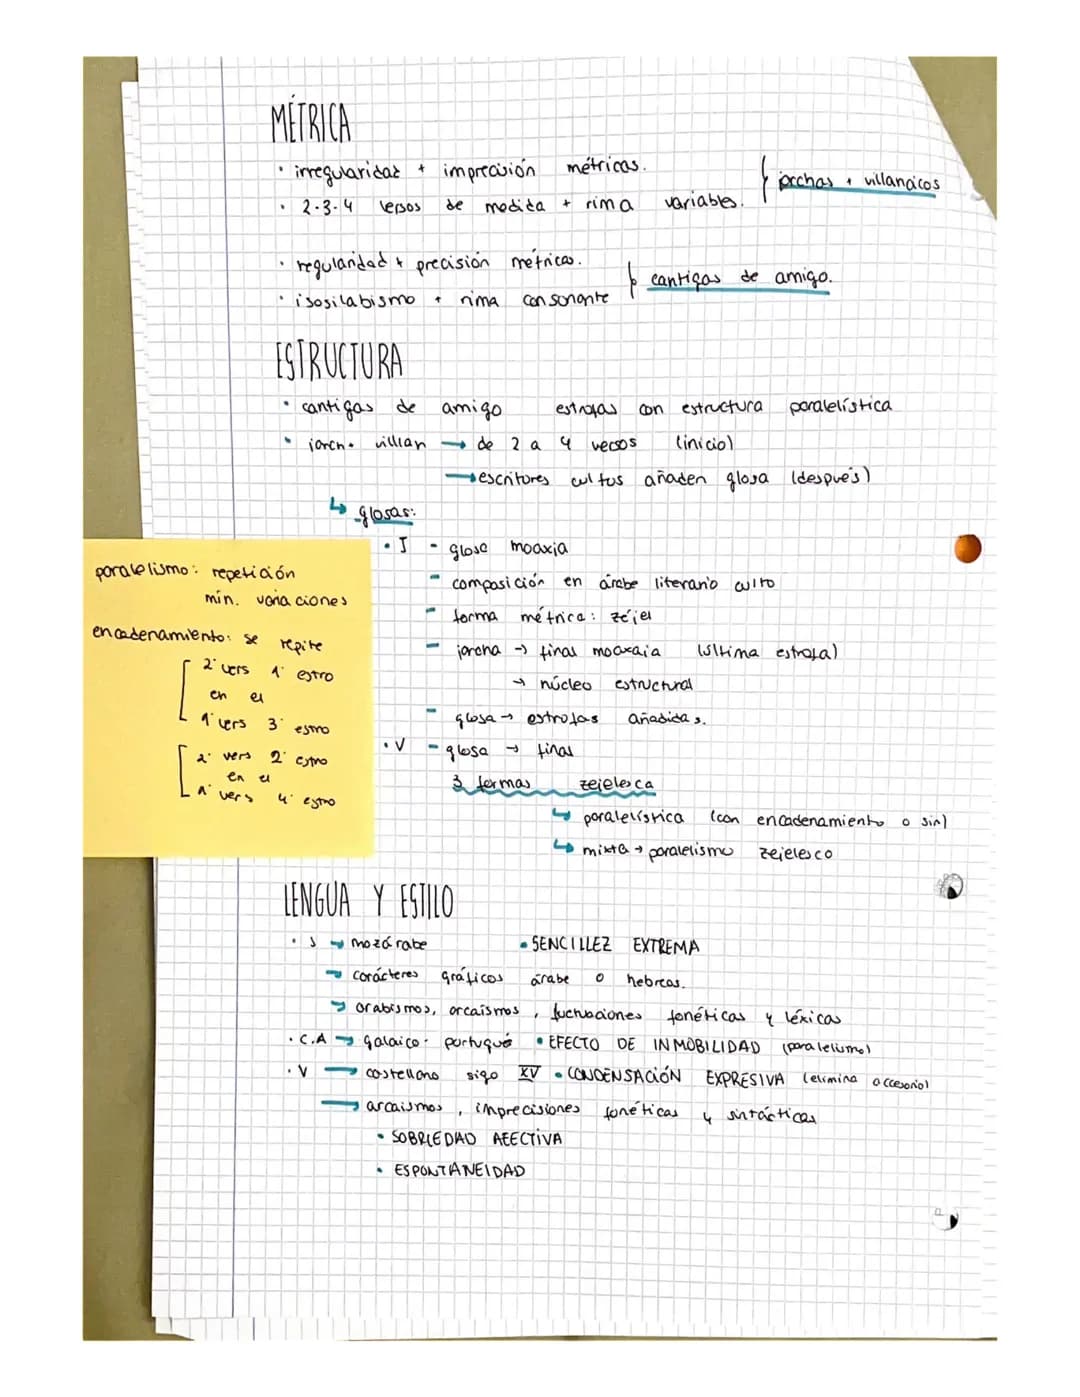 MÉTRICA
· irregularidad + imprecisión métricas.
· 2-3-4 versos de medida + rima variables. } jarchas + villancicos
· regularidad + precisión métricas.
· isosilabismo + rima consonante } cantigas de amigo.
ESTRUCTURA
· cantigas de amigo estrofas con estructura paralelística
· jarch. villan → de 2 a 4 versos (inicio)
→ escritores cultos añaden glosa (después)
↳ glosas:
· J - glosa moaxia
- composición en árabe literario culto
- forma métrica: zéjel
- jarcha → final moaxaia (última estrofa)
→ núcleo estructural
- glosa → estrofas añadidas.
· V - glosa → final
3 formas zejelesca
↳ paralelística (con encadenamiento o sin)
↳ mixta → paralelismo zejelesco
paralelismo: repetición
mín. variaciones
encadenamiento: se repite
2º vers 1º estro
en el
1º vers 3º estro
2º vers 2º estro
en el
1º vers 4º estro
LENGUA Y ESTILO
· J → mozárabe • SENCILLEZ EXTREMA
→ carácteres gráficos árabe o hebreos.
→ arabismos, arcaísmos, fluctuaciones fonéticas y léxicas
· C.A → galaico-portugués • EFECTO DE INMOBILIDAD (paralelismo)
· V → castellano siglo XV • CONDENSACIÓN EXPRESIVA (elimina accesorio)
→ arcaismos, imprecisiones fonéticas y sintácticas
• SOBRIEDAD AFECTIVA
• ESPONTANEIDAD